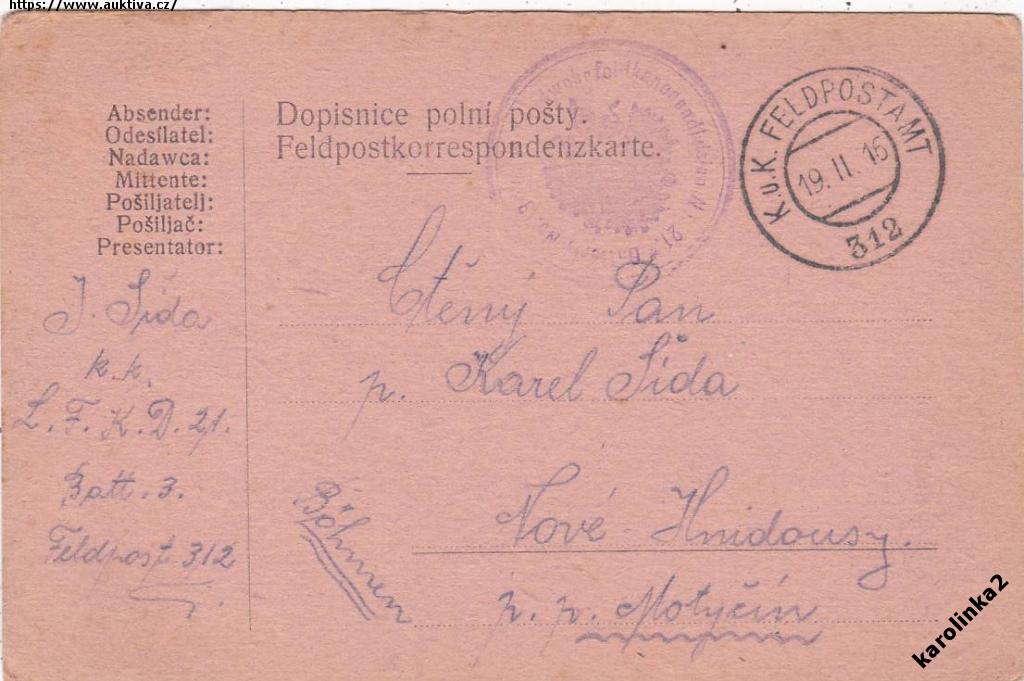 https://www.auktiva.cz/
Absender:
Odesílatel:
Nadawca:
Mittente:
Pošiljatelj:
Pošiljač:
Presentator:
Dopisnice polní pošty.
Feldpostkorrespondenzkarte.
K.u.K. FELDPOSTAMT
19. II. 16
312
J. Šída
k. k.
L. F. K. D. 21.
Batt. 3.
Feldpost 312
Ctěný Pan
p. Karel Šída
Böhmen
Nové Hnidousy.
p. p. Motyčín
karolinka2